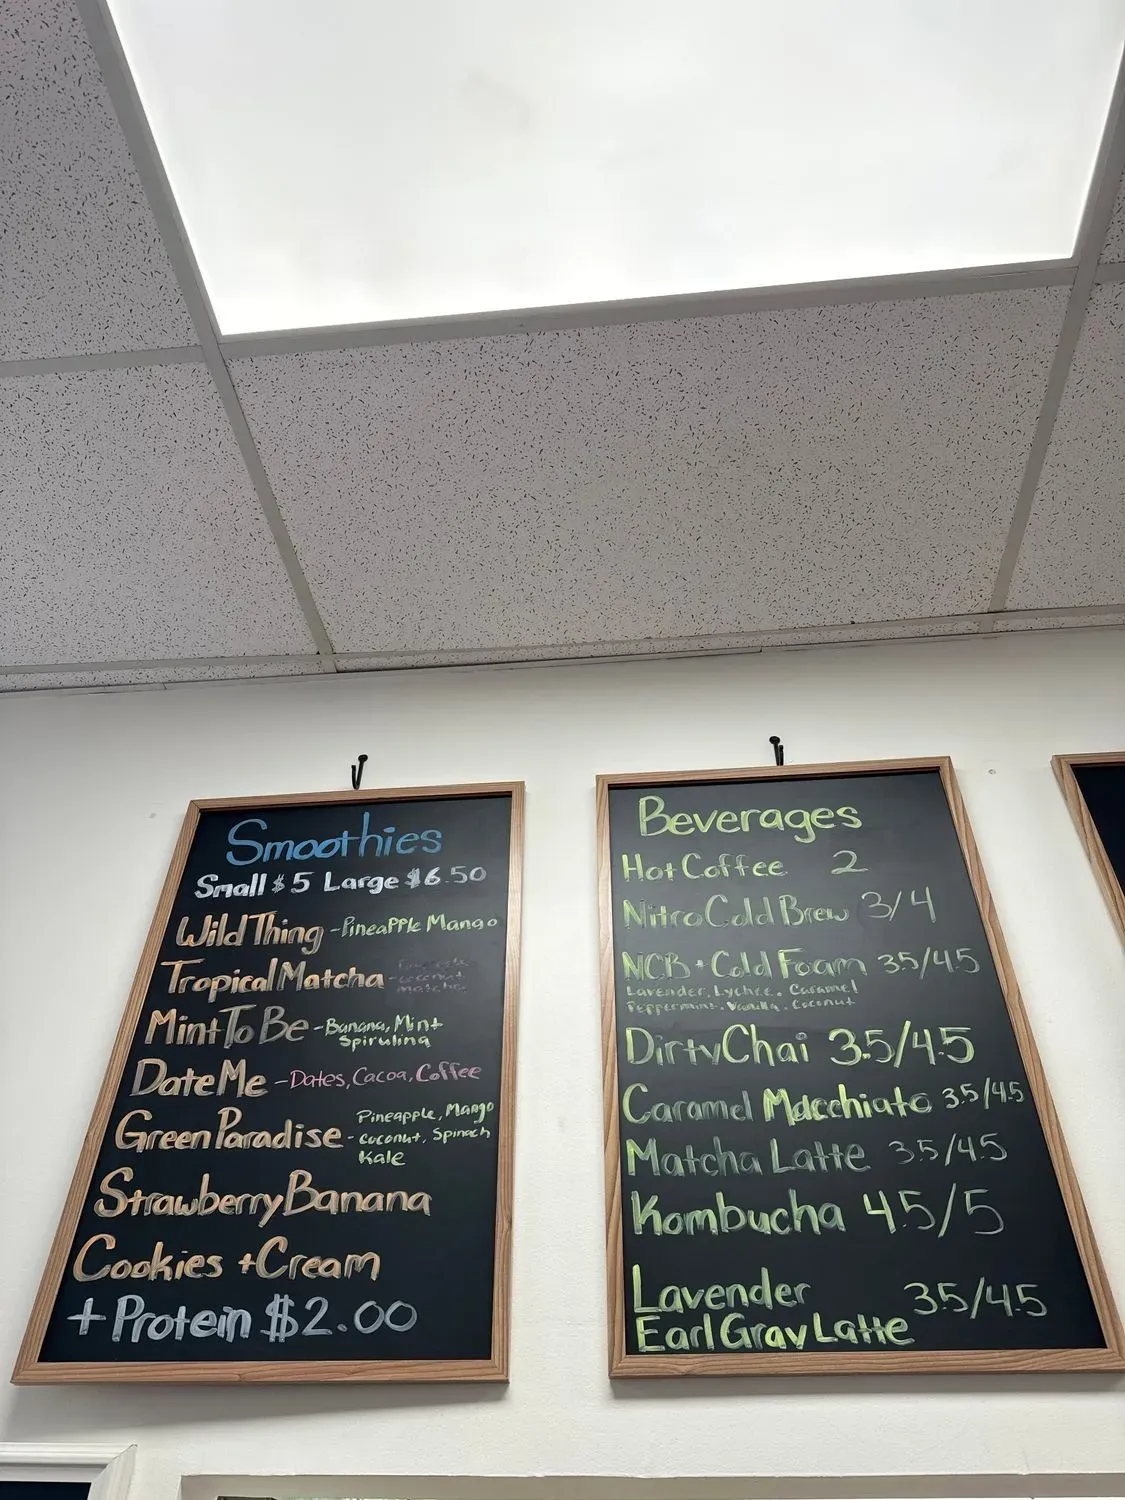 Smoothies
Small $5 Large $6.50
Wild Thing - Pineapple Mango
Tropical Matcha - Pineapple
coconut
matcha
Mint To Be - Banana, Mint
Spirulina
Date Me - Dates, Cacoa, Coffee
Green Paradise - Pineapple, Mango
coconut, Spinach
Kale
Strawberry Banana
Cookies + Cream
+ Protein $2.00
Beverages
Hot Coffee 2
Nitro Cold Brew 3/4
NCB + Cold Foam 3.5/4.5
Lavender, Lychee, Caramel
Peppermint, Vanilla, Coconut
Dirty Chai 3.5/4.5
Caramel Macchiato 3.5/4.5
Matcha Latte 3.5/4.5
Kombucha 4.5/5
Lavender
Earl Gray Latte 3.5/4.5